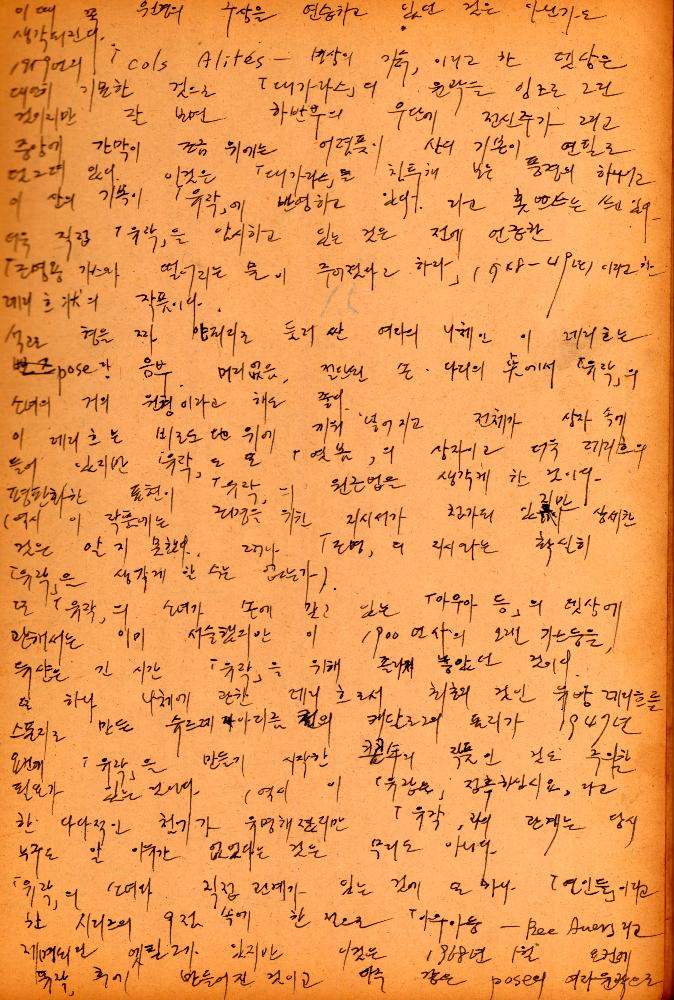 이때 꼭 원경의 구상을 연습하고 있던 것은 아닌가도
생각되진다.
1959년의 「Cols Alités - 병상의 기슭, 이라고 한 뎃상은
대단히 기묘한 것으로 「대가라스」의 윤곽을 잉크로 그린
것이지만 잘 보면 하반부의 우단에 전신주가 그리고
중앙에 간막이 조금 위에는 어렴풋이 산의 기복이 연필로
있다. 이것은 「대가라스」를 침투해 보는 풍경의 하나이고
이 산의 기복이 「유작」에 반영하고 있다. 라고 쓰고 있다.
더욱 직접 「유작」을 암시하고 있는 것은 전에 언급한
「조명용 가스와 떨어지는 물이 주어졌다고 하라」 (1948-49년) 이라고 한
레리프 状의 작품이다.
석고 형을 떠 양피지로 둘러 싼 여자의 나체인 이 레리프는
pose랑 음부 머리없음, 절단된 손·다리의 점에서 「유작」의
소녀의 거의 원형이라고 해도 좋다.
이 레리프는 비로도 地 위에 끼워 넣어지고 전체가 상자 속에
들어 있지만 「유작」도 또 「엿봄」의 상자이고 더욱 레리프의
평판화한 표현이 「유작」의 원근법을 생각케 한 것이다.
(역시 이 작품에는 조명을 위한 지시서가 첨가되 있지만 상세한
것은 알지 못한다. 그러나 「조명」의 지시라는 확실히
「유작」을 생각케 할 수는 없는가).
또 「유작」의 소녀가 손에 갖고 있는 「아우아 등」의 뎃상에
관해서는 이미 서술했지만 이 1900년대의 오랜 가스등을,
뒤샹은 긴 시간 「유작」을 위해 놓았던 것이다.
또 하나 나체에 관한 레리프로서 최초의 것인 유방 레리프를
스폰지로 만든 슈르레아리즘 전의 캐달로그의 표지가 1947년
요컨대 「유작」을 만들기 시작한 직후의 작품인 것도 주의할
필요가 있는 것이다. (역시 이 「유방」은 접촉하십시요, 라고
한 다다적인 천기가 유명해졌지만 「유작」과의 관계는 당시
누구도 알 이유가 없었다는 것은 무리도 아니다.
「유작」의 소녀와 직접 관계가 있는 것에 또 하나 「연인들」이라고
한 시리즈의 9점 속에 한 점으로 「아우아등 - Bec Auer」라고
제명되단 엣칭그가 있지만 이것은 1968년 1월 요컨대
유작, 후에 만들어진 것이고 아주 같은 pose의 여자윤곽으로